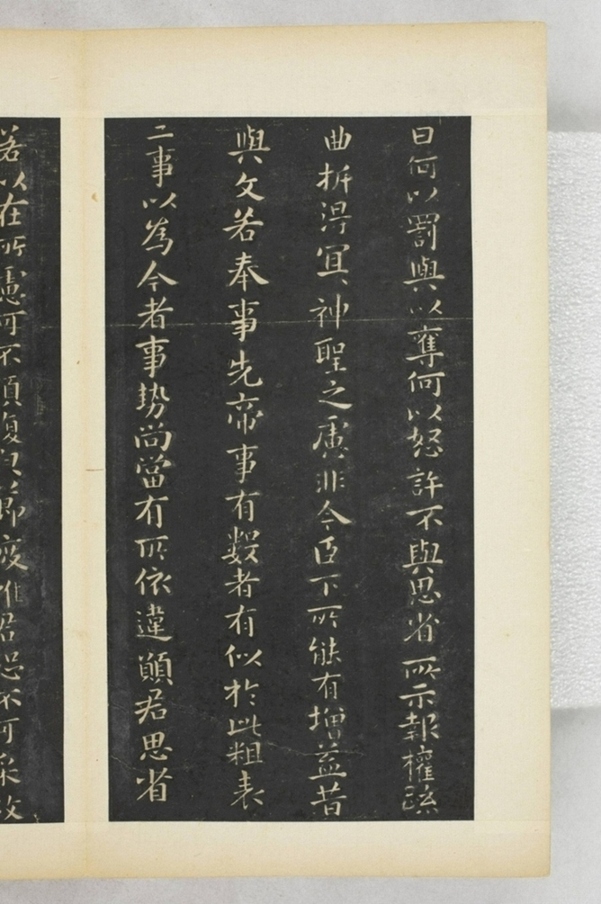 曰何以罰與以奪何以怒許不與思省所示報權疏
曲折得宜神聖之慮非今臣下所能有增益昔
與文若奉事先帝事有毀者有似於此粗表
二事以為今者事勢尚當有所依違願君思省
若以在所慮可不須復與節度唯君恐不可采故